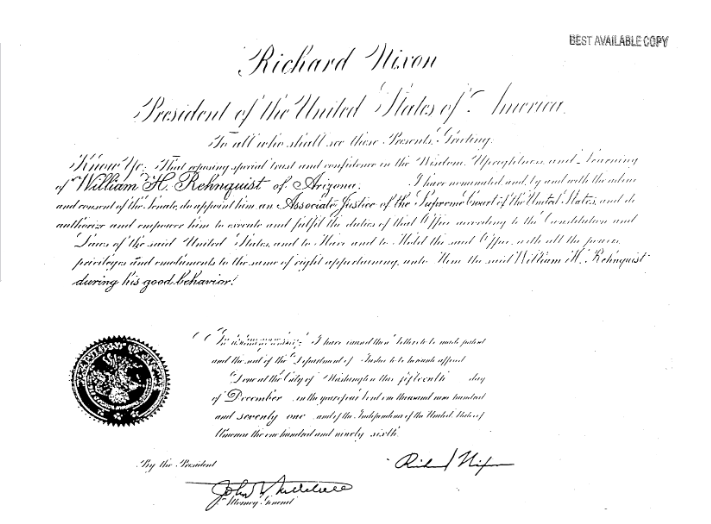 BEST AVAILABLE COPY
Richard Nixon
President of the United States of America
To all who shall see these Presents, Greeting:
Know Ye; That reposing special trust and confidence in the Wisdom, Uprightness and Learning
of William H. Rehnquist of Arizona, I have nominated and, by and with the advice
and consent of the Senate, do appoint him an Associate Justice of the Supreme Court of the United States, and do
authorize and empower him to execute and fulfil the duties of that Office according to the Constitution and
Laws of the said United States, and to Have and to Hold the said Office, with all the powers,
privileges and emoluments to the same of right appertaining, unto Him the said William H. Rehnquist
during his good behavior.
In testimony whereof, I have caused these Letters to be made patent
and the seal of the Department of Justice to be hereunto affixed.
Done at the City of Washington this fifteenth day
of December in the year of our Lord one thousand nine hundred
and seventy one and of the Independence of the United States of
America the one hundred and ninety sixth.
Richard Nixon
By the President
John N. Mitchell
Attorney General